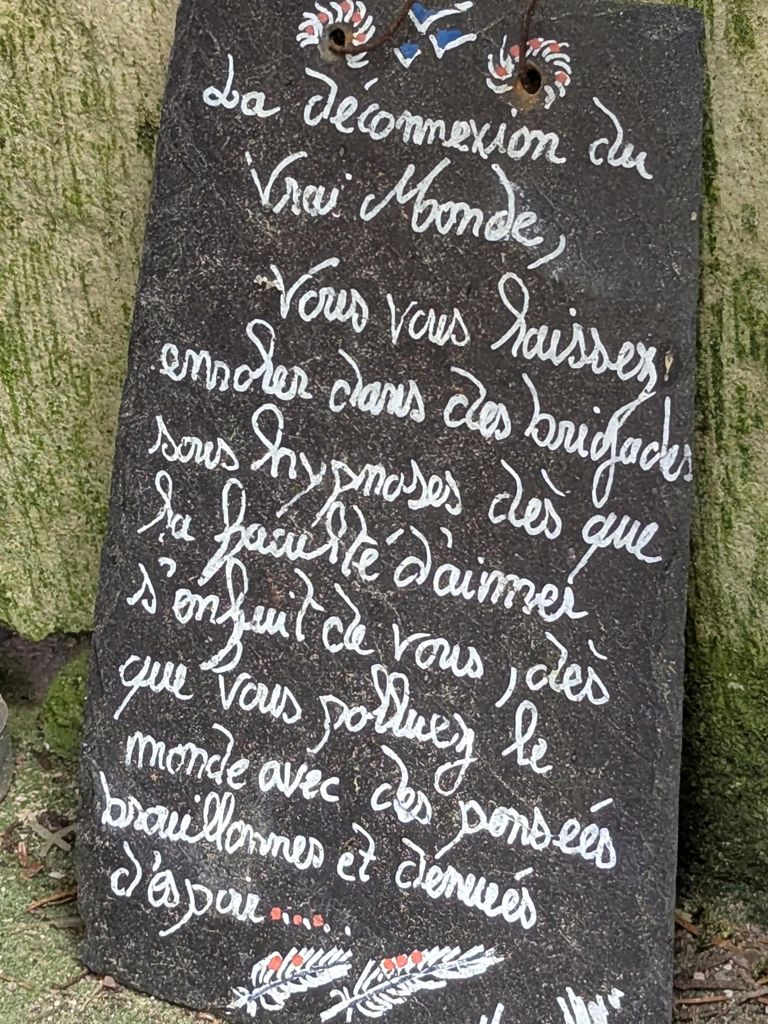 La déconnexion du
Vrai Monde,
Vous vous laissez
enrôler dans des brigades
sous hypnoses dès que
la faculté d'aimer
s'enfuit de vous, dès
que vous polluez le
monde avec des penseés
brouillonnes et dénués
d'éspoir......